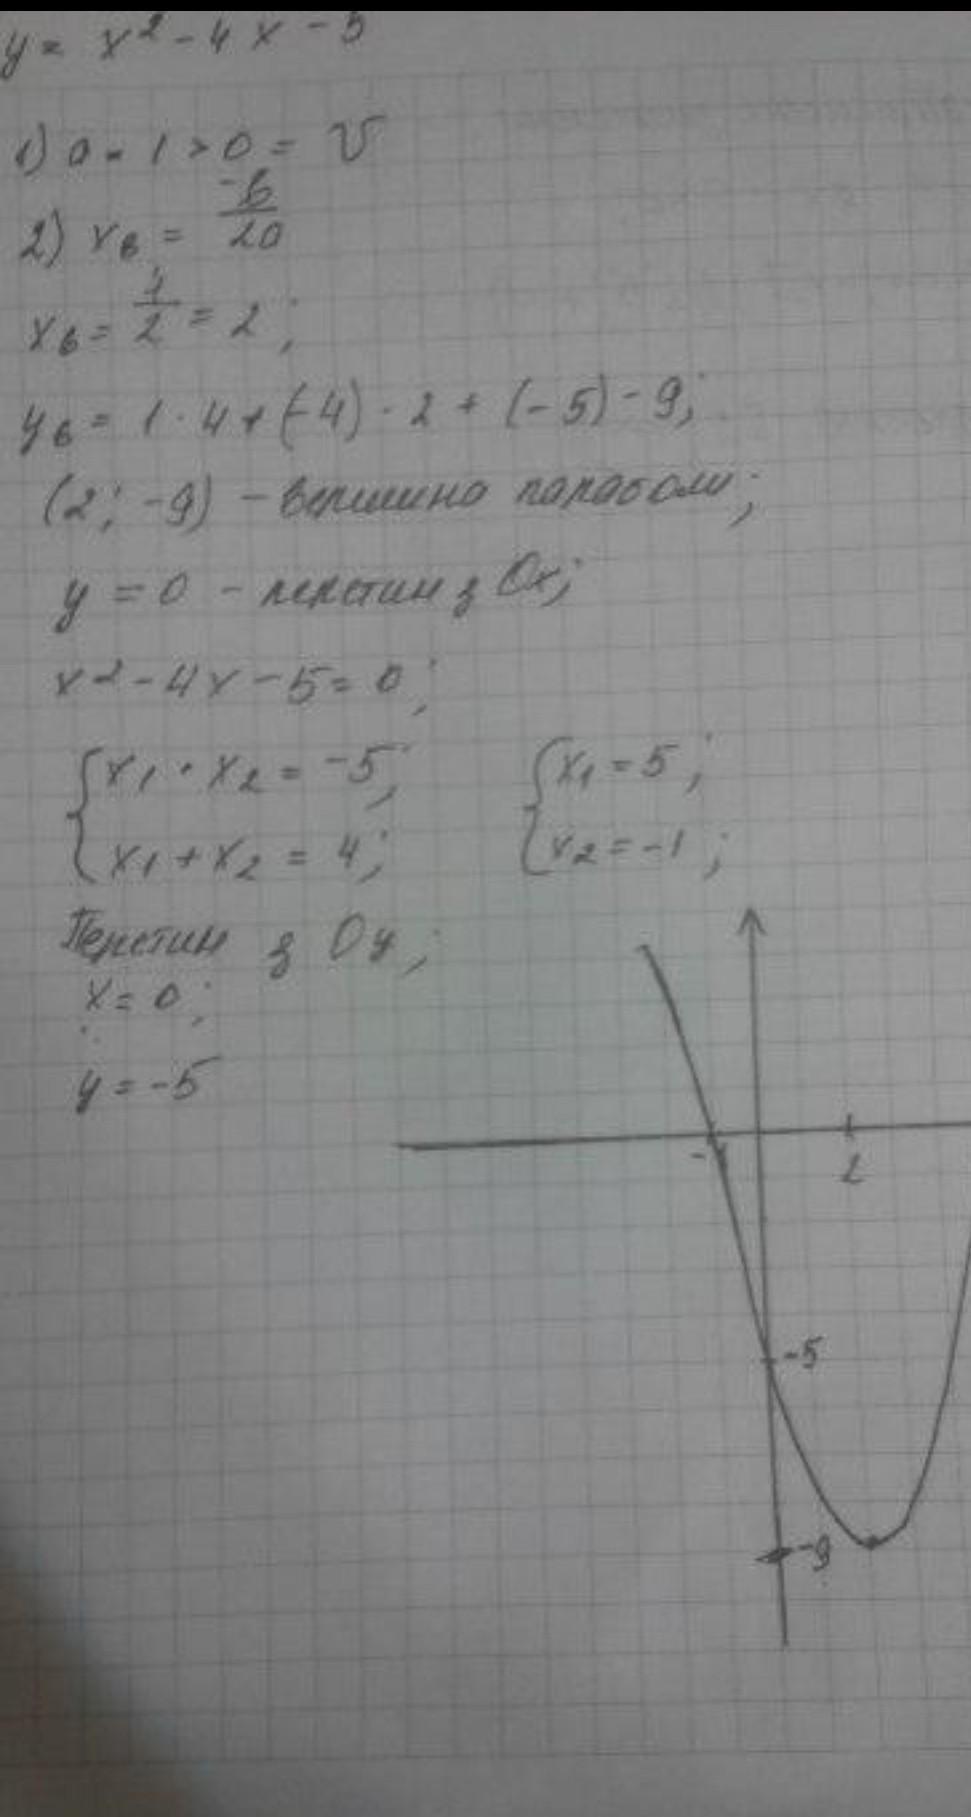 y = x² - 4x - 5
1) a = 1 > 0 = V
2) xв = -в/2a
xв = 4/2 = 2;
yв = 1 · 4 + (-4) · 2 + (-5) - 9;
(2; -9) - вершина параболи;
y = 0 - перетин з Ox;
x² - 4x - 5 = 0;
{ x1 · x2 = -5; { x1 = 5;
x1 + x2 = 4; x2 = -1;
Перетин з Oy;
x = 0;
y = -5
-1 2
-5
-9